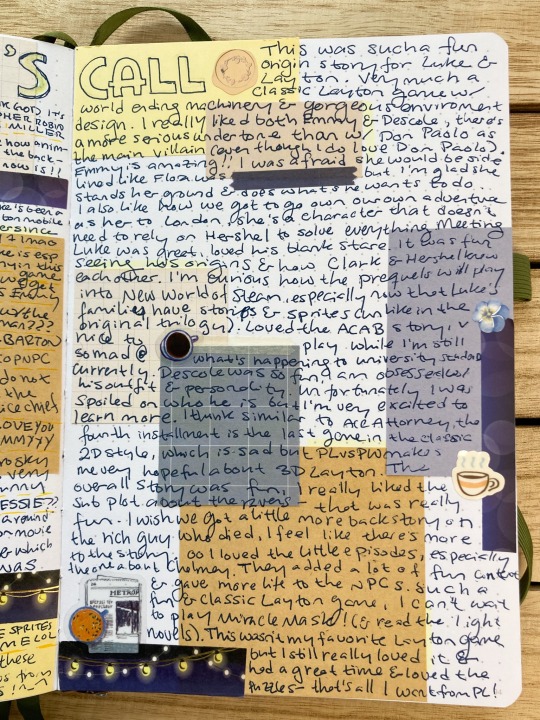 S CALL
This was such a fun
origin story for Luke &
Layton. Very much a
classic Layton game w/
world ending machinery & gorgeous enviroment
design. I really liked both Emmy & Descole, there's
a more serious undertone than w/ Don Paolo as
the main villain (even though I do love Don Paolo).
Emmy is amazing!! I was afraid she would be side
lined like Flora but I'm glad she
stands her ground & does what she wants to do.
I also like how we got to go own our own adventure
as her to London, she's a character that doesn't
need to rely on Hershel to solve everything. Meeting
Luke was great, loved his blank stare. It was fun
seeing his origins & how Clark & Hershel knew
each other. I'm curious how the prequels will play
into New World of Steam, especially now that Luke's
families have stories & sprites can like in the
original trilogy). Loved the ACAB story, v
nice to play while I'm still
so mad @ what's happening to university students
currently. Descole was so fun, I am obsessed w/
his outfit & personality. Unfortunately I was
spoiled on who he is but I'm very excited to
learn more. I think similar to Ace Attorney, the
fourth installment is the last game in the classic
2D style, which is sad but PLvsPW makes
me very hopeful about 3D Layton. The
overall story was fun, I really liked the
sub plot about the ravens that was really
fun. I wish we got a little more backstory on
the rich guy who died, I feel like there's more
to the story. I loved the little episodes, especially
the one about Chelmey. They added a lot of fun context
& gave more life to the NPCs. Such a
fun & classic Layton game, I can't wait
to play Miracle Mask! (& read the light
novels). This wasn't my favorite Layton game
but I still really loved it &
had a great time & loved the
puzzles - that's all I want from PL!
METRO
GOD IT'S
MILLER
how anim
the back
now is!!
BARTON
TOP NPC
do not
the
LOVE YOU
very
JESSIE??
around
movie
which
was
SPRITES
ME LOL
these